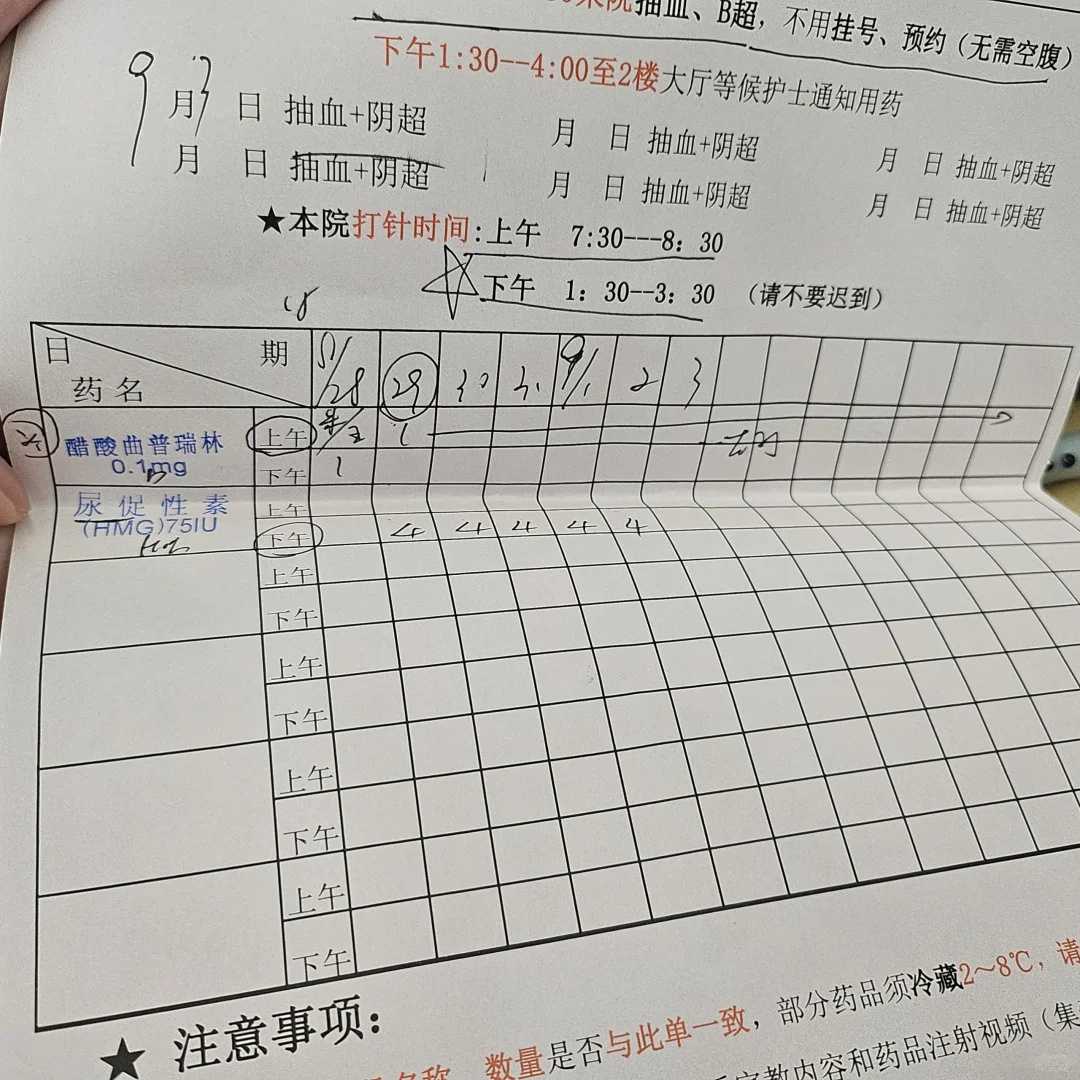 来院抽血、B超，不用挂号、预约（无需空腹）
下午1:30--4:00至2楼大厅等候护士通知用药
9月3日 抽血+阴超 月 日 抽血+阴超 月 日 抽血+阴超
月 日 抽血+阴超 月 日 抽血+阴超 月 日 抽血+阴超
★本院打针时间:上午 7:30---8：30
下午 1：30--3：30 （请不要迟到）
日期 8/28 29 30 31 9/1 2 3
药名
醋酸曲普瑞林 上午 1
0.1mg 下午 1
尿促性素 上午
(HMG)75IU 下午 4 4 4 4 4
上午
下午
上午
下午
上午
下午
上午
下午
★ 注意事项：
名称、数量是否与此单一致，部分药品须冷藏2～8℃，请
宣教内容和药品注射视频（集